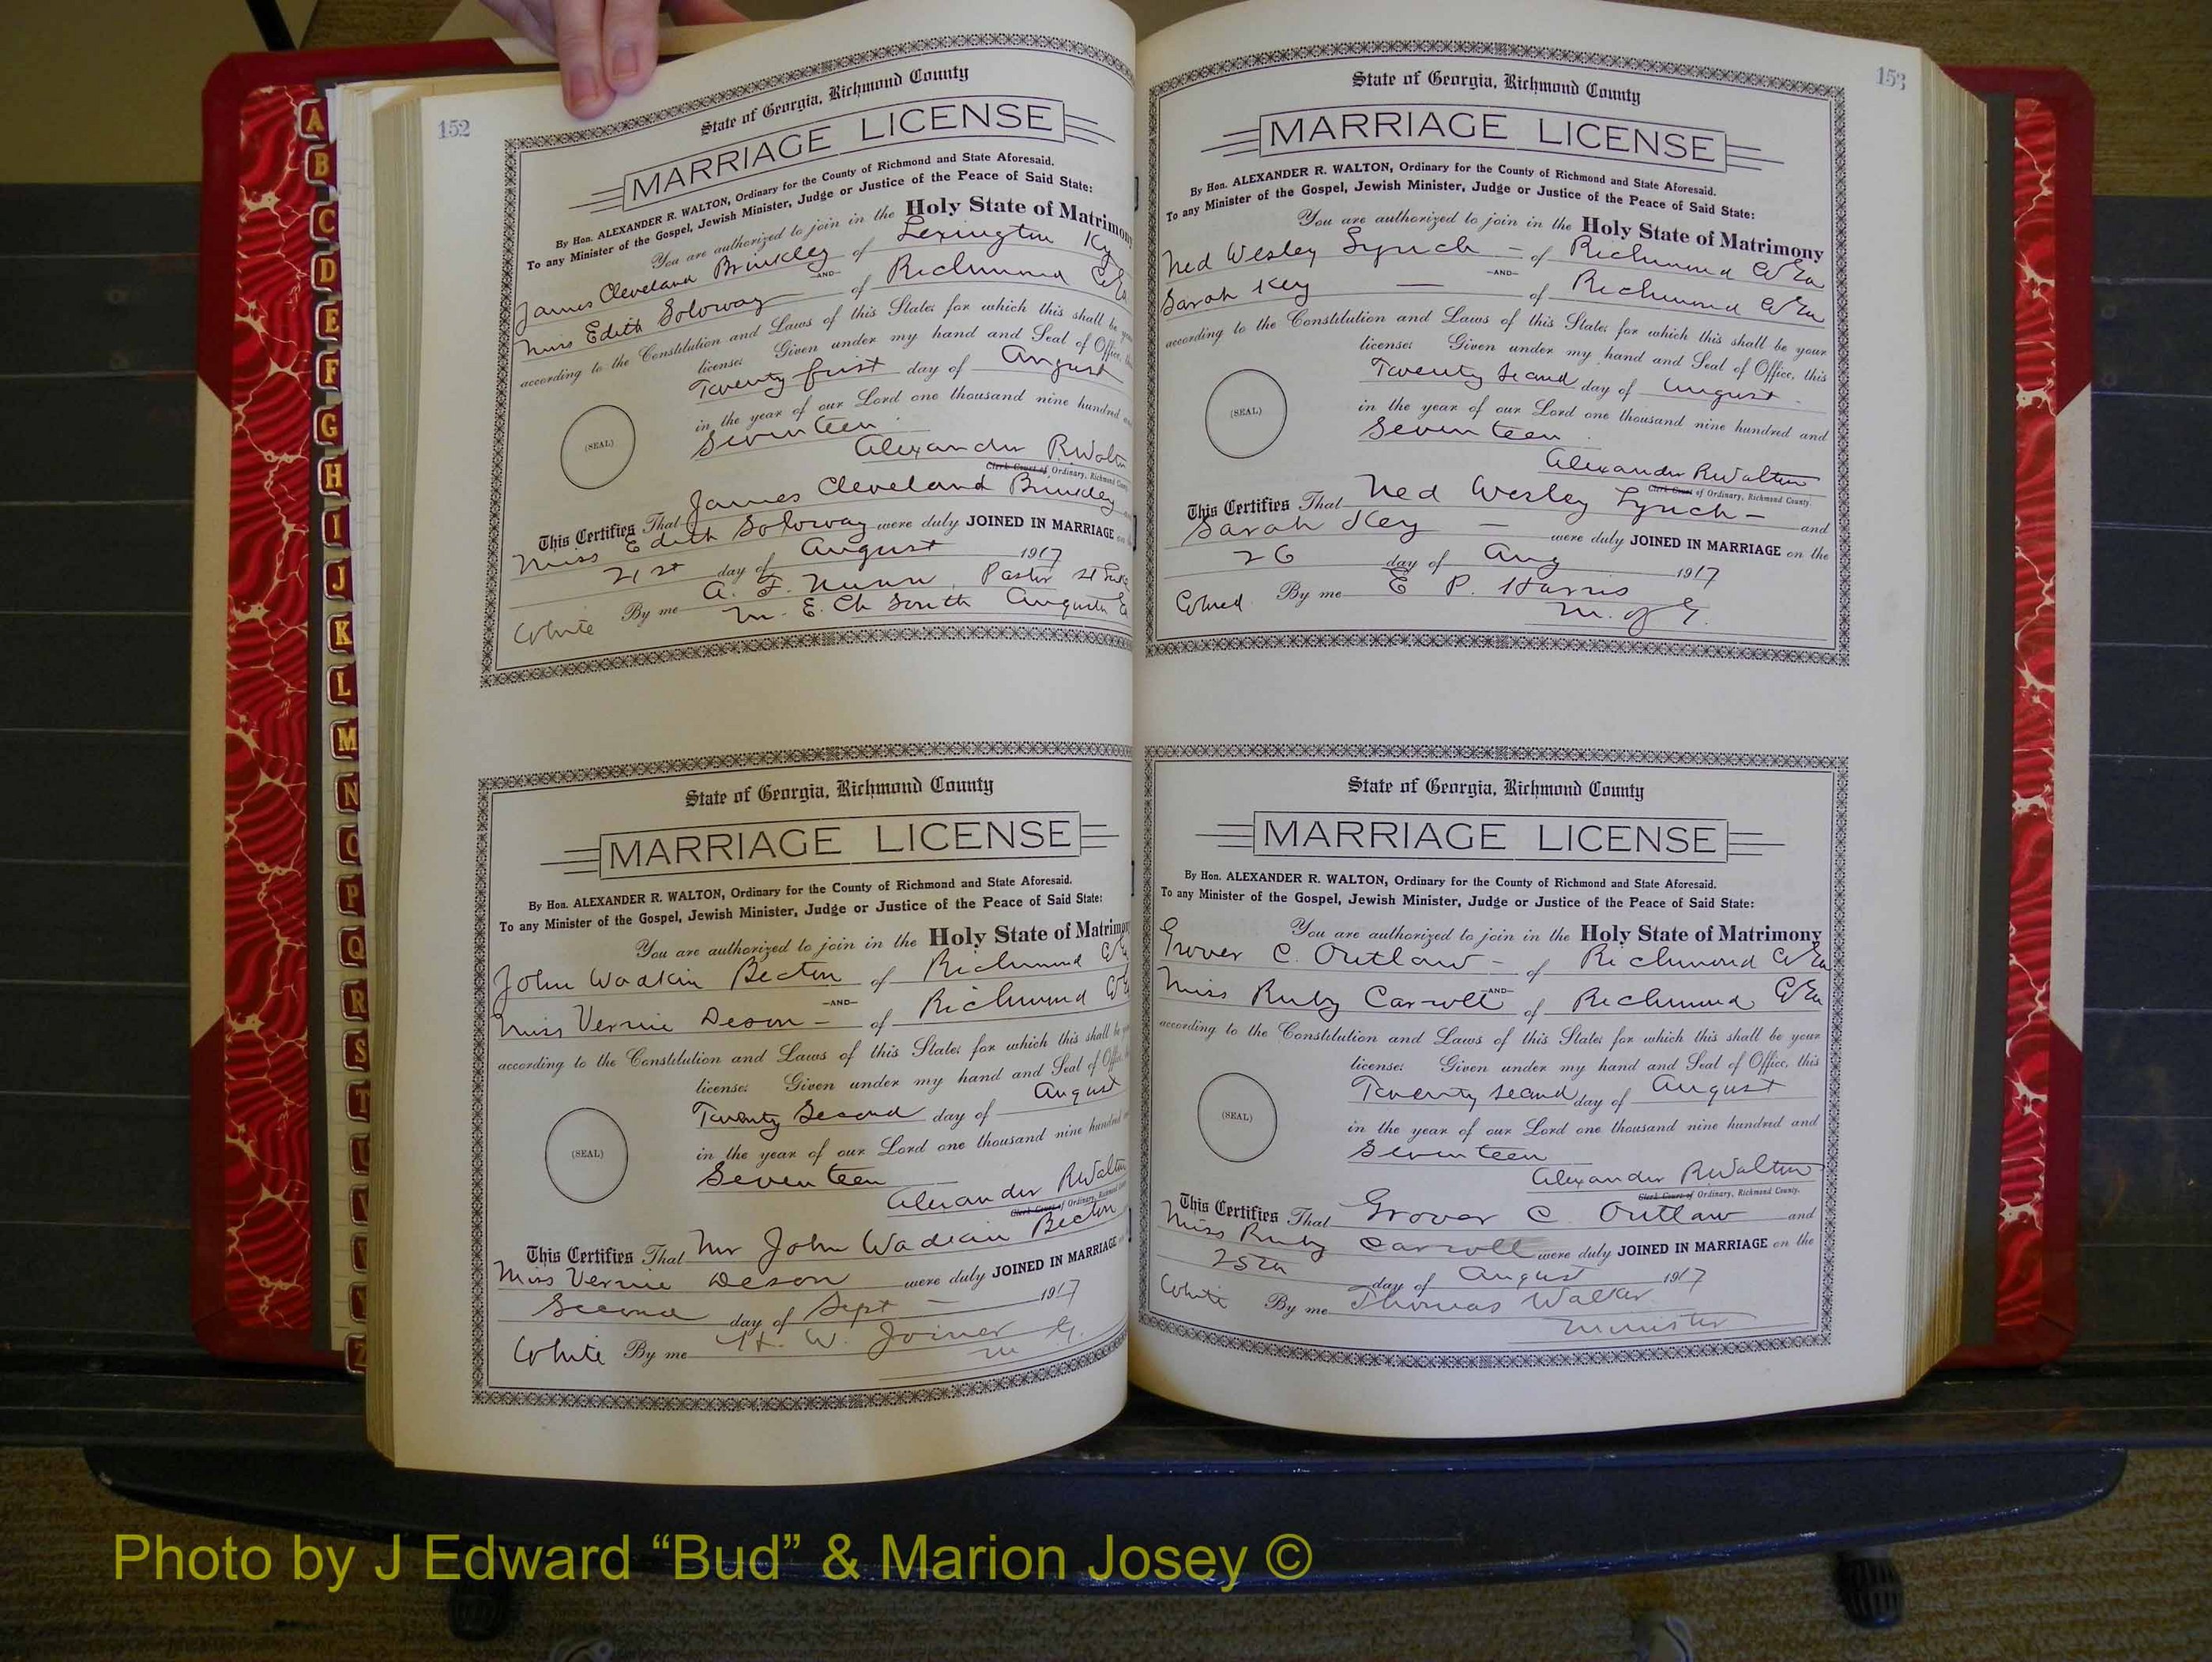 152
State of Georgia, Richmond County
MARRIAGE LICENSE
By Hon. ALEXANDER R. WALTON, Ordinary for the County of Richmond and State Aforesaid.
To any Minister of the Gospel, Jewish Minister, Judge or Justice of the Peace of Said State:
You are authorized to join in the Holy State of Matrimony
James Cleveland Brinkley of Lexington Ky
—AND—
Miss Edith Soloway of Richmond
according to the Constitution and Laws of this State; for which this shall be
license: Given under my hand and Seal of Office,
Twenty first day of August
in the year of our Lord one thousand nine hundred
Seventeen
(SEAL)
Alexander R Walton
Clerk Court of Ordinary, Richmond County
This Certifies That James Cleveland Brinkley
Miss Edith Soloway were duly JOINED IN MARRIAGE
21st day of August 1917
By me A. F. Nunn, Pastor St
White M. E. Ch South Augusta
State of Georgia, Richmond County
MARRIAGE LICENSE
By Hon. ALEXANDER R. WALTON, Ordinary for the County of Richmond and State Aforesaid.
To any Minister of the Gospel, Jewish Minister, Judge or Justice of the Peace of Said State:
You are authorized to join in the Holy State of Matrimony
John Wadkin Becton of Richmond
—AND—
Miss Vernie Deson of Richmond
according to the Constitution and Laws of this State; for which this shall be
license: Given under my hand and Seal of Office,
Twenty Second day of August
in the year of our Lord one thousand nine hundred
(SEAL)
Seventeen
Alexander R Walton
Clerk Court of Ordinary, Richmond
This Certifies That Mr John Wadkin Becton
Miss Vernie Deson were duly JOINED IN MARRIAGE
Second day of Sept 1917
White By me H. W. Joiner
153
State of Georgia, Richmond County
MARRIAGE LICENSE
By Hon. ALEXANDER R. WALTON, Ordinary for the County of Richmond and State Aforesaid.
To any Minister of the Gospel, Jewish Minister, Judge or Justice of the Peace of Said State:
You are authorized to join in the Holy State of Matrimony
Ned Wesley Lynch of Richmond Co Ga
—AND—
Sarah Key of Richmond Co Ga
according to the Constitution and Laws of this State; for which this shall be your
license: Given under my hand and Seal of Office, this
Twenty Second day of August
(SEAL)
in the year of our Lord one thousand nine hundred and
Seventeen
Alexander R Walton
Clerk Court of Ordinary, Richmond County.
This Certifies That Ned Wesley Lynch and
Sarah Key were duly JOINED IN MARRIAGE on the
26 day of Aug 1917
Colored By me E P. Harris
M. of G.
State of Georgia, Richmond County
MARRIAGE LICENSE
By Hon. ALEXANDER R. WALTON, Ordinary for the County of Richmond and State Aforesaid.
To any Minister of the Gospel, Jewish Minister, Judge or Justice of the Peace of Said State:
You are authorized to join in the Holy State of Matrimony
Grover C. Outlaw of Richmond Co Ga
—AND—
Miss Ruby Carroll of Richmond Co Ga
according to the Constitution and Laws of this State; for which this shall be your
license: Given under my hand and Seal of Office, this
Twenty Second day of August
(SEAL)
in the year of our Lord one thousand nine hundred and
Seventeen
Alexander R Walton
Clerk Court of Ordinary, Richmond County.
This Certifies That Grover C. Outlaw and
Miss Ruby Carroll were duly JOINED IN MARRIAGE on the
25th day of August 1917
White By me Thomas Walker
Minister
A
B
C
D
E
F
G
H
I
J
K
L
M
N
O
P
Q
R
S
T
Photo by J Edward “Bud” & Marion Josey ©